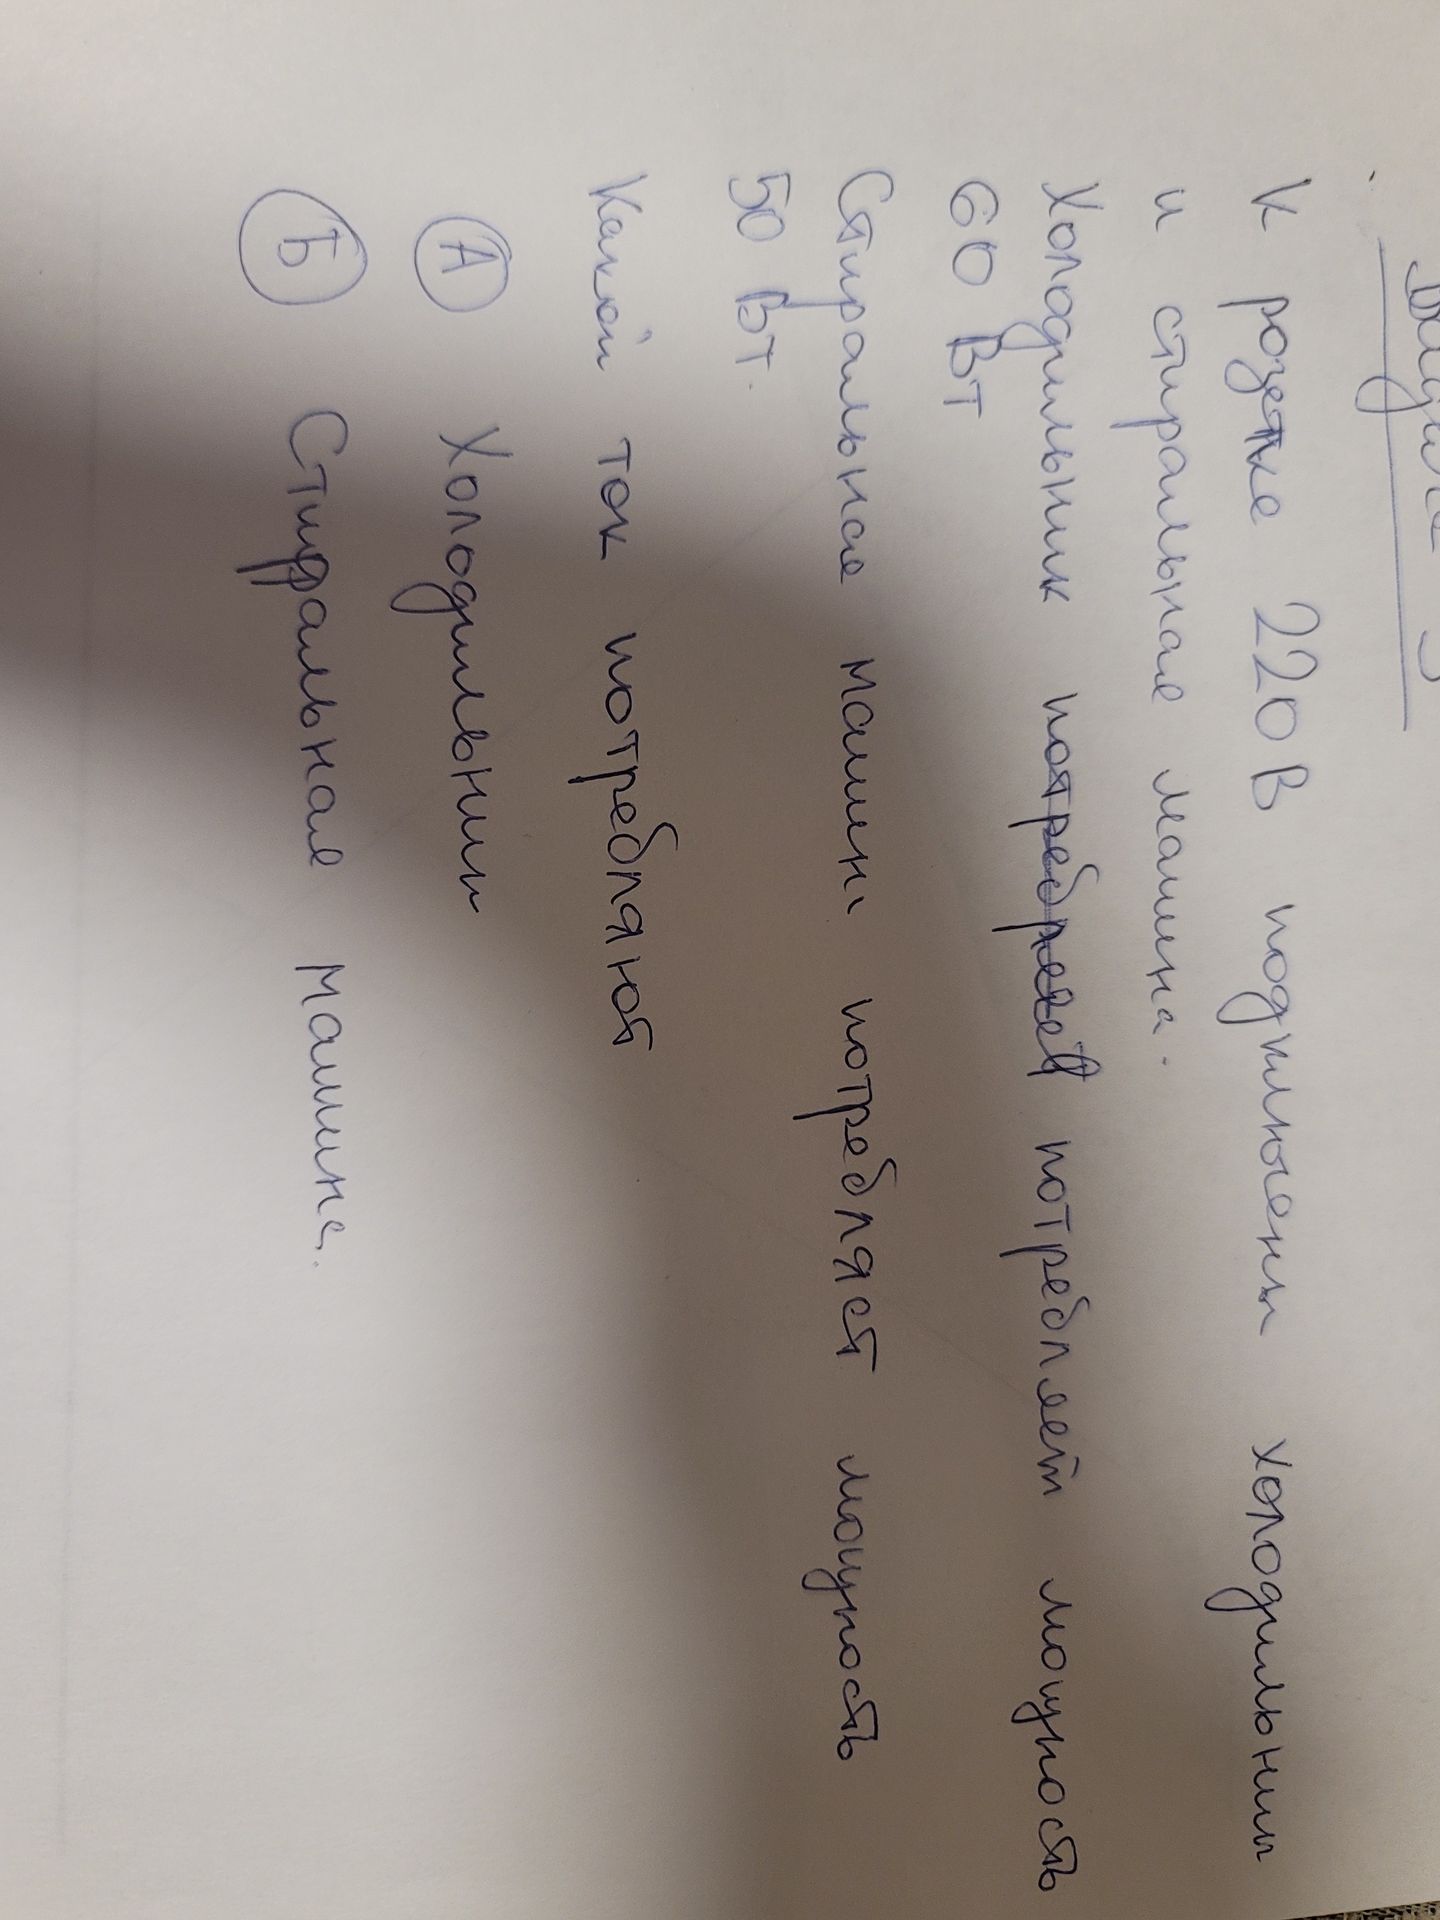 К розетке 220В подключены холодильник
и стиральная машина.
Холодильник потребляет потребляет мощность
60 Вт
Стиральная машин потребляет мощность
50 Вт.
Какой ток потребляют
А Холодильник
Б Стиральная машина.